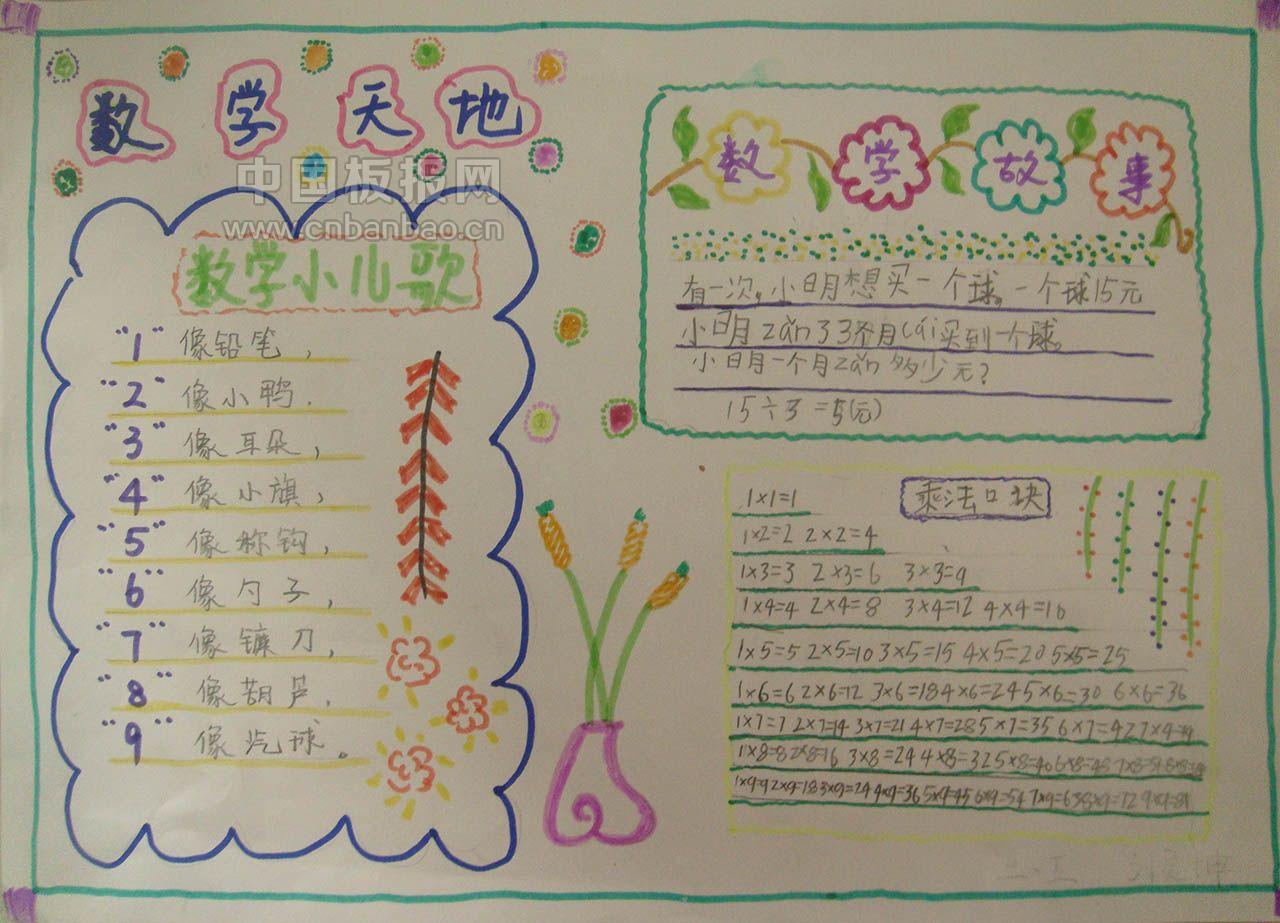 数学天地
中国板报网
www.cnbanbao.cn
数学小儿歌
"1"像铅笔，
"2"像小鸭.
"3"像耳朵，
"4"像小旗，
"5"像称钩，
"6"像勺子，
"7"像镰刀，
"8"像葫芦，
"9"像汽球。
数学故事
有一次，小明想买一个球。一个球15元
小明zǎn33个月cái买到一个球。
小明一个月zǎn多少元？
15÷3=5(元)
乘法口块
1×1=1
1×2=2 2×2=4
1×3=3 2×3=6 3×3=9
1×4=4 2×4=8 3×4=12 4×4=16
1×5=5 2×5=10 3×5=15 4×5=20 5×5=25
1×6=6 2×6=12 3×6=18 4×6=24 5×6=30 6×6=36
1×7=7 2×7=14 3×7=21 4×7=28 5×7=35 6×7=42
1×8=8 2×8=16 3×8=24 4×8=32 5×8=40 6×8=48
1×9=9 2×9=18 4×9=36 5×9=45 6×9=54 7×9=63 8×9=72 9×9=81